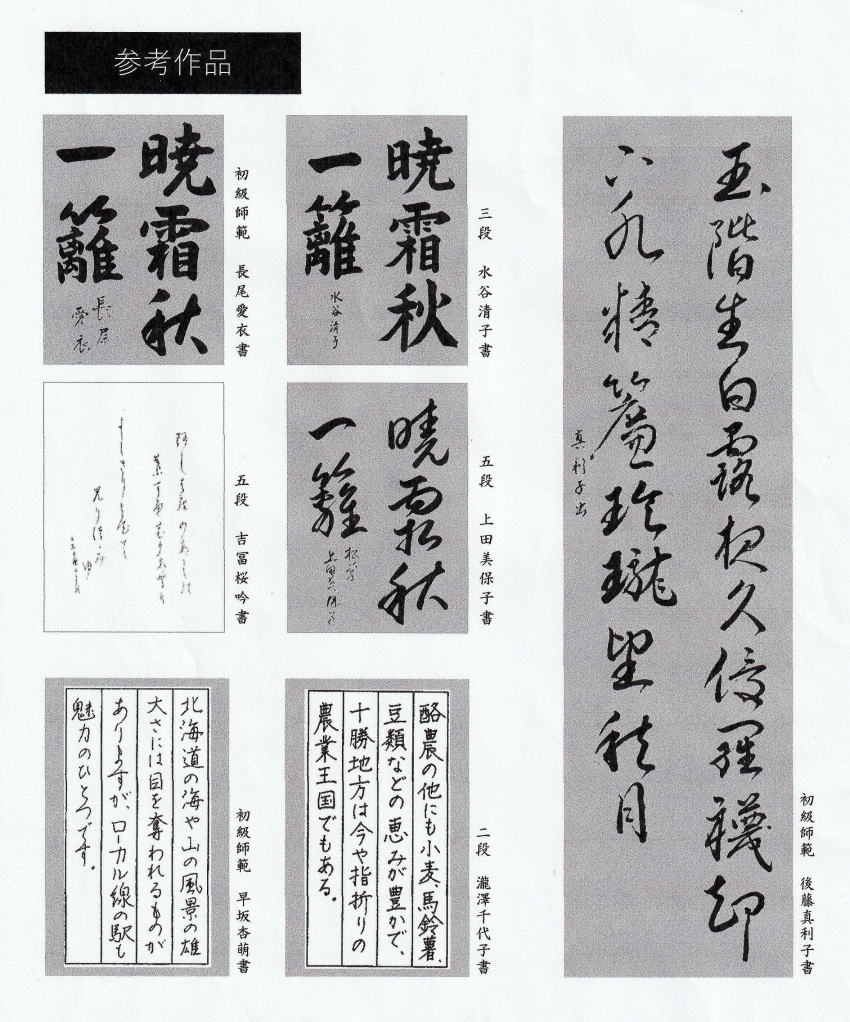 参考作品
玉階生白露夜久侵羅襪却
下水精簾玲瓏望秋月
真利子
初級師範　後藤真利子書
暁霜秋
一籬
水谷清子
三段　水谷清子書
暁霜秋
一籬
長尾
愛衣
初級師範　長尾愛衣書
暁霜秋
一籬
松学
上田美保子
五段　上田美保子書
五段　吉冨桜吟書
酪農の他にも小麦、馬鈴薯、
豆類などの恵みが豊かで、
十勝地方は今や指折りの
農業王国でもある。
二段　瀧澤千代子書
北海道の海や山の風景の雄
大さには目を奪われるものが
ありますが、ローカル線の駅も
魅力のひとつです。
初級師範　早坂杏萌書